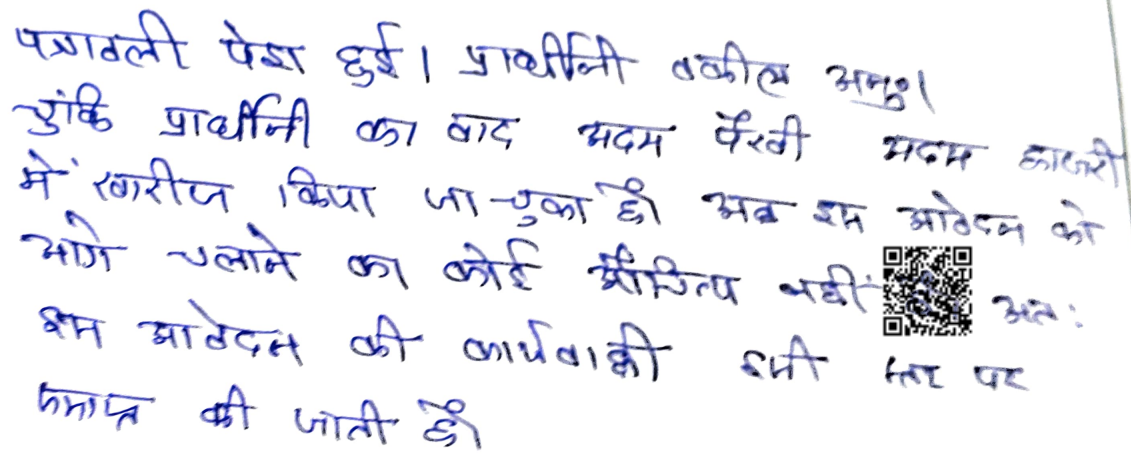 पत्रावली पेश हुई। प्रार्थीनी वकील अनु०।
चुंकि प्रार्थीनी का वाद अदम पैरवी अदम हाजरी
में खारीज किया जा चुका है। अब इस आवेदन को
आगे चलाने का कोई औचित्य नहीं अतः
इस आवेदन की कार्यवाही इसी स्तर पर
समाप्त की जाती है।